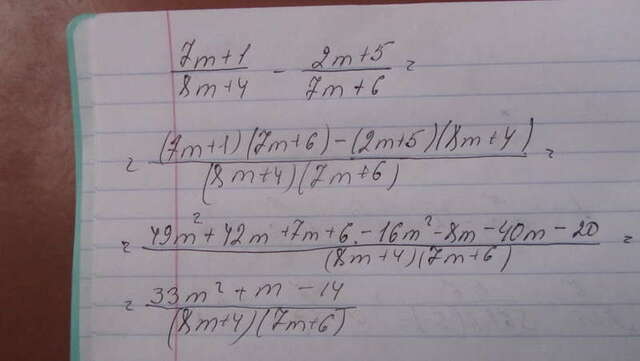 (7m+1)/(8m+4) - (2m+5)/(7m+6) =
= ((7m+1)(7m+6)-(2m+5)(8m+4))/((8m+4)(7m+6)) =
= (49m²+42m+7m+6-16m²-8m-40m-20)/((8m+4)(7m+6)) =
= (33m²+m-14)/((8m+4)(7m+6))